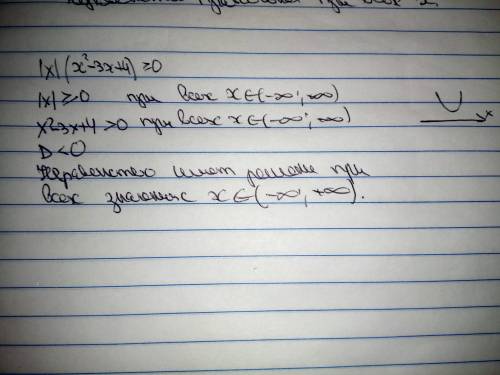 при всех x.
|x|(x²-3x+4) ≥0
|x| ≥0 при всех x∈(-∞; ∞)
x²-3x+4>0 при всех x∈(-∞; ∞)
x
D<0
Неравенство имеет решение при
всех значениях x∈(-∞; +∞).